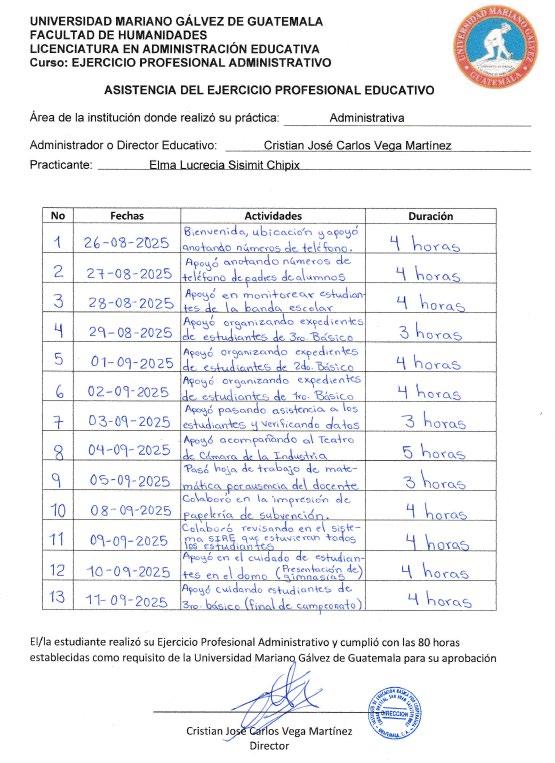 UNIVERSIDAD MARIANO GÁLVEZ DE GUATEMALA
FACULTAD DE HUMANIDADES
LICENCIATURA EN ADMINISTRACIÓN EDUCATIVA
Curso: EJERCICIO PROFESIONAL ADMINISTRATIVO
UNIVERSIDAD MARIANO GÁLVEZ
GUATEMALA
ASISTENCIA DEL EJERCICIO PROFESIONAL EDUCATIVO
Área de la institución donde realizó su práctica: Administrativa
Administrador o Director Educativo: Cristian José Carlos Vega Martínez
Practicante: Elma Lucrecia Sisimit Chipix
No Fechas Actividades Duración
1 26-08-2025 Bienvenida, ubicación y apoyó
anotando números de teléfono. 4 horas
2 27-08-2025 Apoyó anotando números de
teléfono de padres de alumnos 4 horas
3 28-08-2025 Apoyó en monitorear estudian-
tes de la banda escolar 4 horas
4 29-08-2025 Apoyó organizando expedientes
de estudiantes de 3ro. Básico 3 horas
5 01-09-2025 Apoyó organizando expedientes
de estudiantes de 2do. Básico 4 horas
6 02-09-2025 Apoyó organizando expedientes
de estudiantes de 1ro. Básico 4 horas
7 03-09-2025 Apoyó pasando asistencia a los
estudiantes y verificando datos 3 horas
8 04-09-2025 Apoyó acompañando al Teatro
de Cámara de la Industria 5 horas
9 05-09-2025 Pasó hoja de trabajo de mate-
mática por ausencia del docente 3 horas
10 08-09-2025 Colaboró en la impresión de
papelería de subvención. 4 horas
11 09-09-2025 Colaboró revisando en el siste-
ma SIRE que estuvieran todos
los estudiantes 4 horas
12 10-09-2025 Apoyó en el cuidado de estudian-
tes en el domo (Presentación de) (gimnasias) 4 horas
13 11-09-2025 Apoyó cuidando estudiantes de
3ro. básico (final de campeonato) 4 horas
El/la estudiante realizó su Ejercicio Profesional Administrativo y cumplió con las 80 horas
establecidas como requisito de la Universidad Mariano Gálvez de Guatemala para su aprobación
DIRECCION
GUATEMALA, C. A.
Cristian José Carlos Vega Martínez
Director